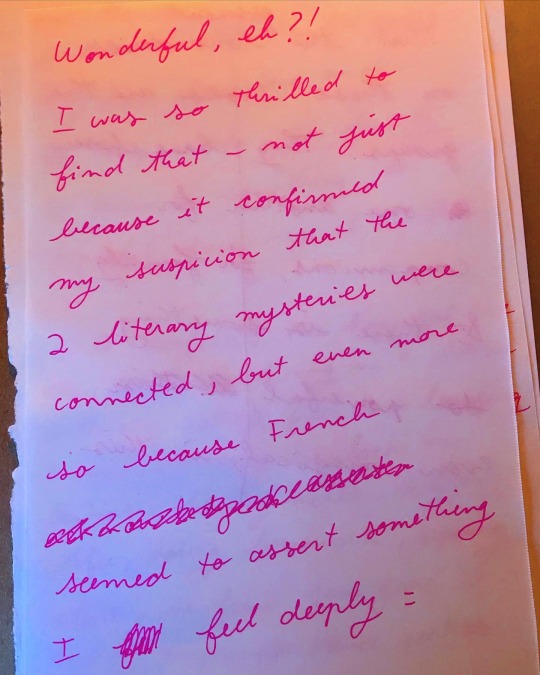 Wonderful, eh?!
I was so thrilled to
find that – not just
because it confirmed
my suspicion that the
2 literary mysteries were
connected, but even more
so because French
seemed to assert something
I feel deeply =